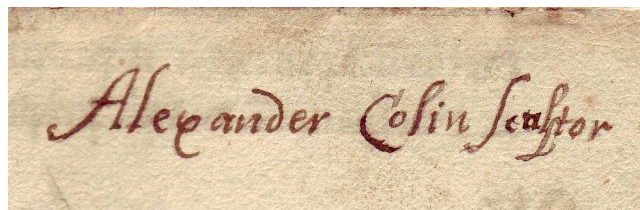 Alexander Colin Sculptor